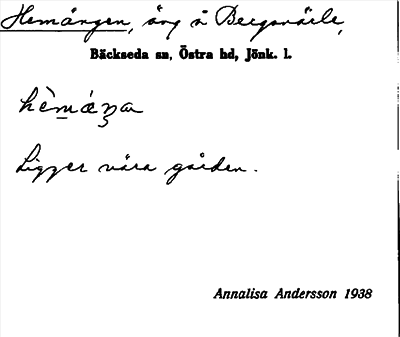 Hemängen, äng å Bergsvärle,
Bäckseda sn, Östra hd, Jönk. l.
Ligger nära gården.
Annalisa Andersson 1938